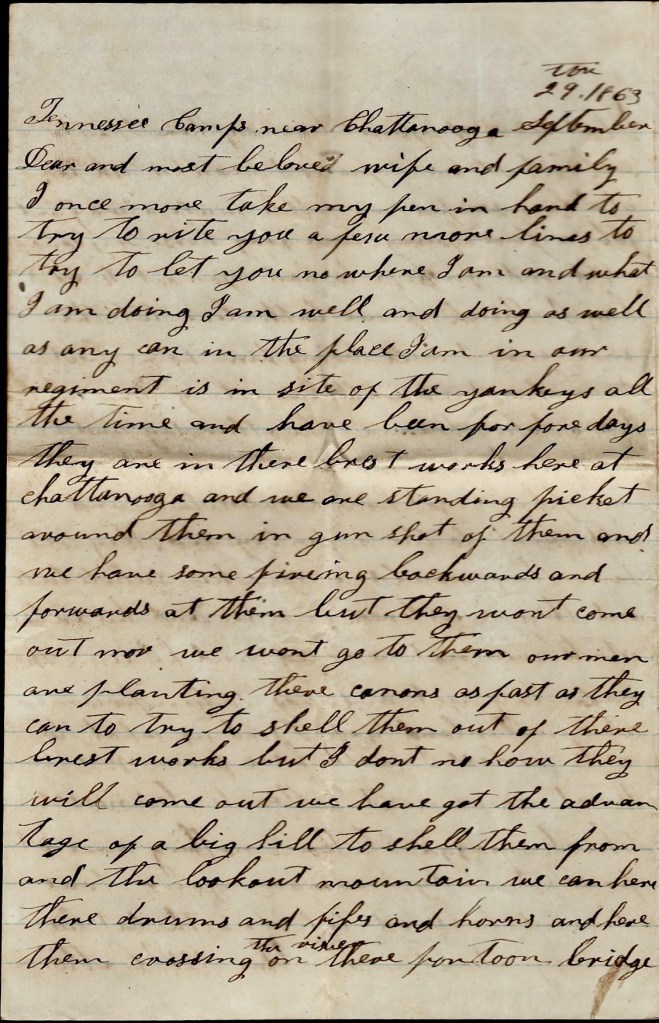 the
29. 1863
Tennessee Camps near Chattanooga September
Dear and most beloved wife and family
I once more take my pen in hand to
try to rite you a few more lines to
try to let you no where I am and what
I am doing I am well and doing as well
as any can in the place I am in our
regiment is in site of the yankeys all
the time and have been for fore days
they are in there brest works here at
chattanooga and we are standing picket
around them in gun shot of them and
we have some fireing backwards and
forwards at them but they wont come
out nor we wont go to them our men
are planting there canons as fast as they
can to try to shell them out of there
brest works but I dont no how they
will come out we have got the advan
tage of a big hill to shell them from
and the lookout mountain we can here
there drums and fifes and horns and here
the river
them crossing on there pontoon bridge